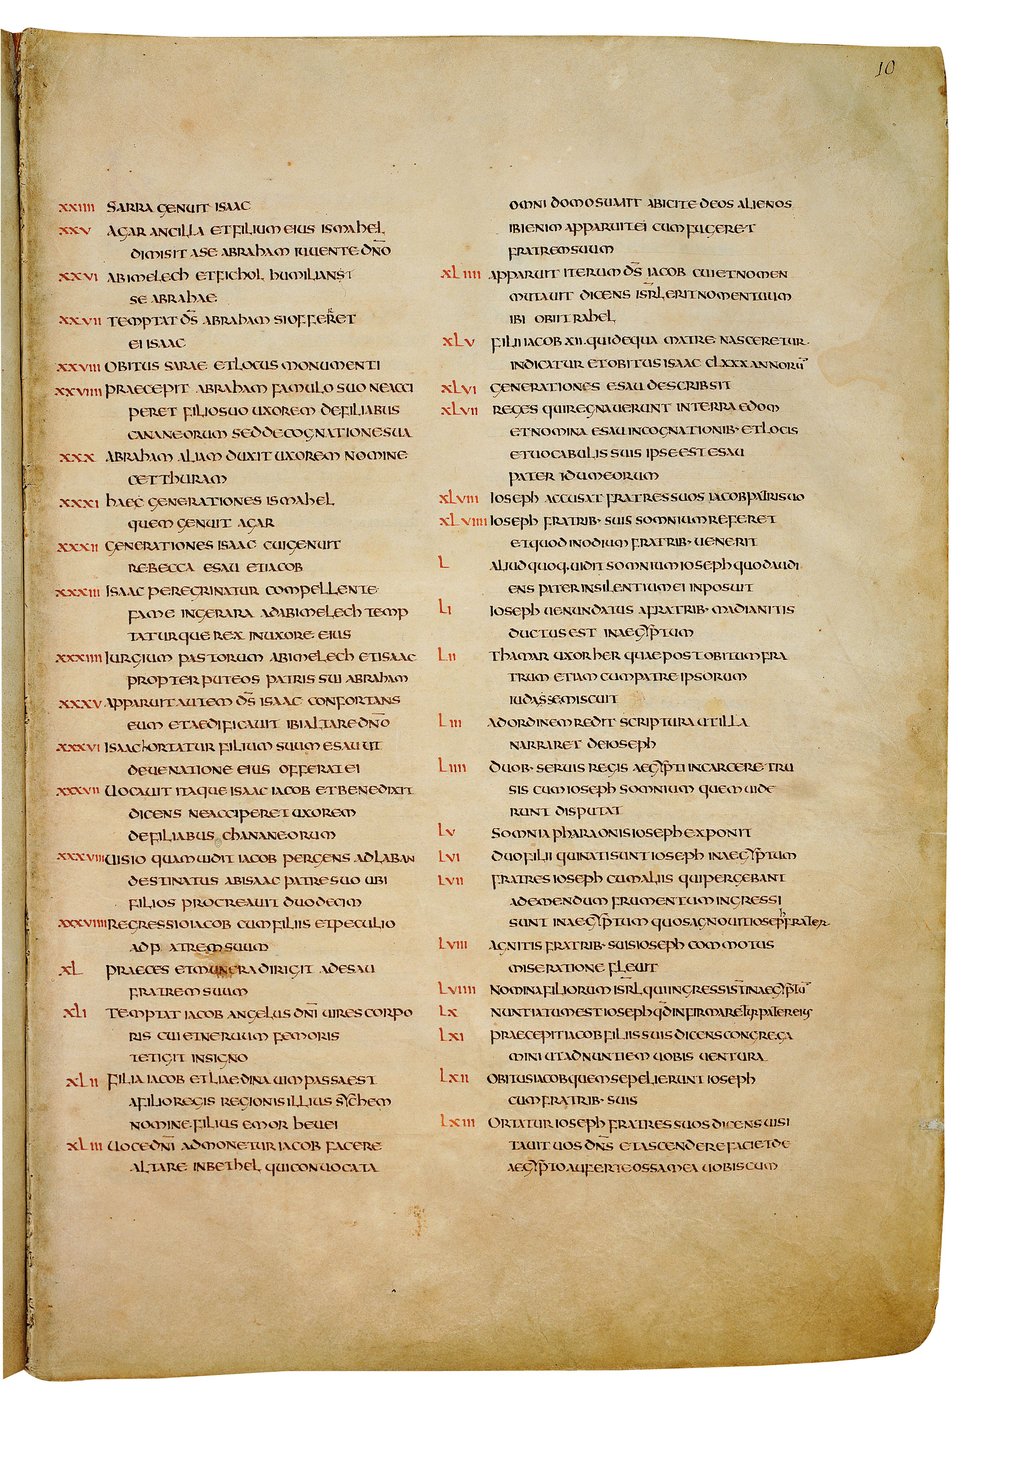 10
XXIIII SARRA GENUIT ISAAC
XXV AGAR ANCILLA ET FILIUM EIUS ISMAHEL
DIMISIT A SE ABRAHAM IUUENTE DN̄O
XXVI ABIMELECH ET FICHOL HUMILIANST
SE ABRAHAE
XXVII TEMPTAT DS̄ ABRAHAM SI OFFERRET
EI ISAAC
XXVIII OBITUS SARAE ET LOCUS MONUMENTI
XXVIIII PRAECEPIT ABRAHAM FAMULO SUO NE ACCI
PERET FILIO SUO UXOREM DE FILIABUS
CANANEORUM SED DE COGNATIONE SUA
XXX ABRAHAM ALIAM DUXIT UXOREM NOMINE
CETTHURAM
XXXI HAEC GENERATIONES ISMAHEL
QUEM GENUIT AGAR
XXXII GENERATIONES ISAAC CUI GENUIT
REBECCA ESAU ET IACOB
XXXIII ISAAC PEREGRINATUR COMPELLENTE
FAME IN GERARA AD ABIMELECH TEMP
TATURQUE REX IN UXORE EIUS
XXXIIII IURGIUM PASTORUM ABIMELECH ET ISAAC
PROPTER PUTEOS PATRIS SUI ABRAHAM
XXXV APPARUIT AUTEM DS̄ ISAAC CONFORTANS
EUM ET AEDIFICAUIT IBI ALTARE DN̄O
XXXVI ISAAC HORTATUR FILIUM SUUM ESAU UT
DE UENATIONE EIUS OFFERAT EI
XXXVII UOCAUIT ITAQUE ISAAC IACOB ET BENEDIXIT
DICENS NE ACCIPERET UXOREM
DE FILIABUS CHANANEORUM
XXXVIII UISIO QUAM UIDIT IACOB PERGENS AD LABAN
DESTINATUS AB ISAAC PATRE SUO UBI
FILIOS PROCREAUIT DUODECIM
XXXVIIII REGRESSIO IACOB CUM FILIIS ET PECULIO
AD PATREM SUUM
XL PRAECES ET MUNERA DIRIGIT AD ESAU
FRATREM SUUM
XLI TEMPTAT IACOB ANGELUS DN̄I UIRES CORPO
RIS CUI ET NERUUM FEMORIS
TETIGIT IN SIGNO
XLII FILIA IACOB ET LIAE DINA UIM PASSA EST
A FILIO REGIS REGIONIS ILLIUS SYCHEM
NOMINE FILIUS EMOR HEUEI
XLIII UOCE DN̄I ADMONETUR IACOB FACERE
ALTARE IN BETHEL QUI CONUOCATA
OMNI DOMO SUA AIT ABICITE DEOS ALIENOS
IBI ENIM APPARUIT EI CUM FUGERET
FRATREM SUUM
XLIIII APPARUIT ITERUM DS̄ IACOB CUI ET NOMEN
MUTAUIT DICENS ISRL̄ ERIT NOMEN TUUM
IBI OBIIT RAHEL
XLV FILII IACOB XII QUI DE QUA MATRE NASCERETUR
INDICATUR ET OBITUS ISAAC CLXXX ANNORŪ
XLVI GENERATIONES ESAU DESCRIBSIT
XLVII REGES QUI REGNAUERUNT IN TERRA EDOM
ET NOMINA ESAU IN COGNATIONIB· ET LOCIS
ET UOCABULIS SUIS IPSE EST ESAU
PATER IDUMEORUM
XLVIII IOSEPH ACCUSAT FRATRES SUOS IACOB PATRI SUO
XLVIIII IOSEPH FRATRIB· SUIS SOMNIUM REFERET
ET QUOD IN ODIUM FRATRIB· UENERIT
L ALIUD QUOQ· UIDIT SOMNIUM IOSEPH QUOD AUDI
ENS PATER IN SILENTIUM EI INPOSUIT
LI IOSEPH UENUNDATUS A FRATRIB· MADIANITIS
DUCTUS EST IN AEGYPTUM
LII THAMAR UXOR HER QUAE POST OBITUM FRA
TRUM ETIAM CUM PATRE IPSORUM
IUDAS SE MISCUIT
LIII AD ORDINEM REDIT SCRIPTURA UT ILLA
NARRARET DE IOSEPH
LIIII DUOB· SERUIS REGIS AEGYPTI IN CARCERE TRU
SIS CUM IOSEPH SOMNIUM QUEM UIDE
RUNT DISPUTAT
LV SOMNIA PHARAONIS IOSEPH EXPONIT
LVI DUO FILII QUI NATI SUNT IOSEPH IN AEGYPTUM
LVII FRATRES IOSEPH CUM ALIIS QUI PERGEBANT
AD EMENDUM FRUMENTUM INGRESSI
SUNT IN AEGYPTUM QUOS AGNOUIT IOSEPH FRATER
LVIII AGNITIS FRATRIB· SUIS IOSEPH COMMOTUS
MISERATIONE FLEUIT
LVIIII NOMINA FILIORUM ISRL̄ QUI INGRESSI ST̄ IN AEGYPTŪ
LX NUNTIATUM EST IOSEPH QD̄ INFIRMARETUR PATER EIUS
LXI PRAECEPIT IACOB FILIIS SUIS DICENS CONGREGA
MINI UT ADNUNTIEM UOBIS UENTURA
LXII OBITUS IACOB QUEM SEPELIERUNT IOSEPH
CUM FRATRIB· SUIS
LXIII ORTATUR IOSEPH FRATRES SUOS DICENS UISI
TAUIT UOS DN̄S ET ASCENDERE FACIET DE
AEGYPTO AUFERTE OSSA MEA UOBISCUM